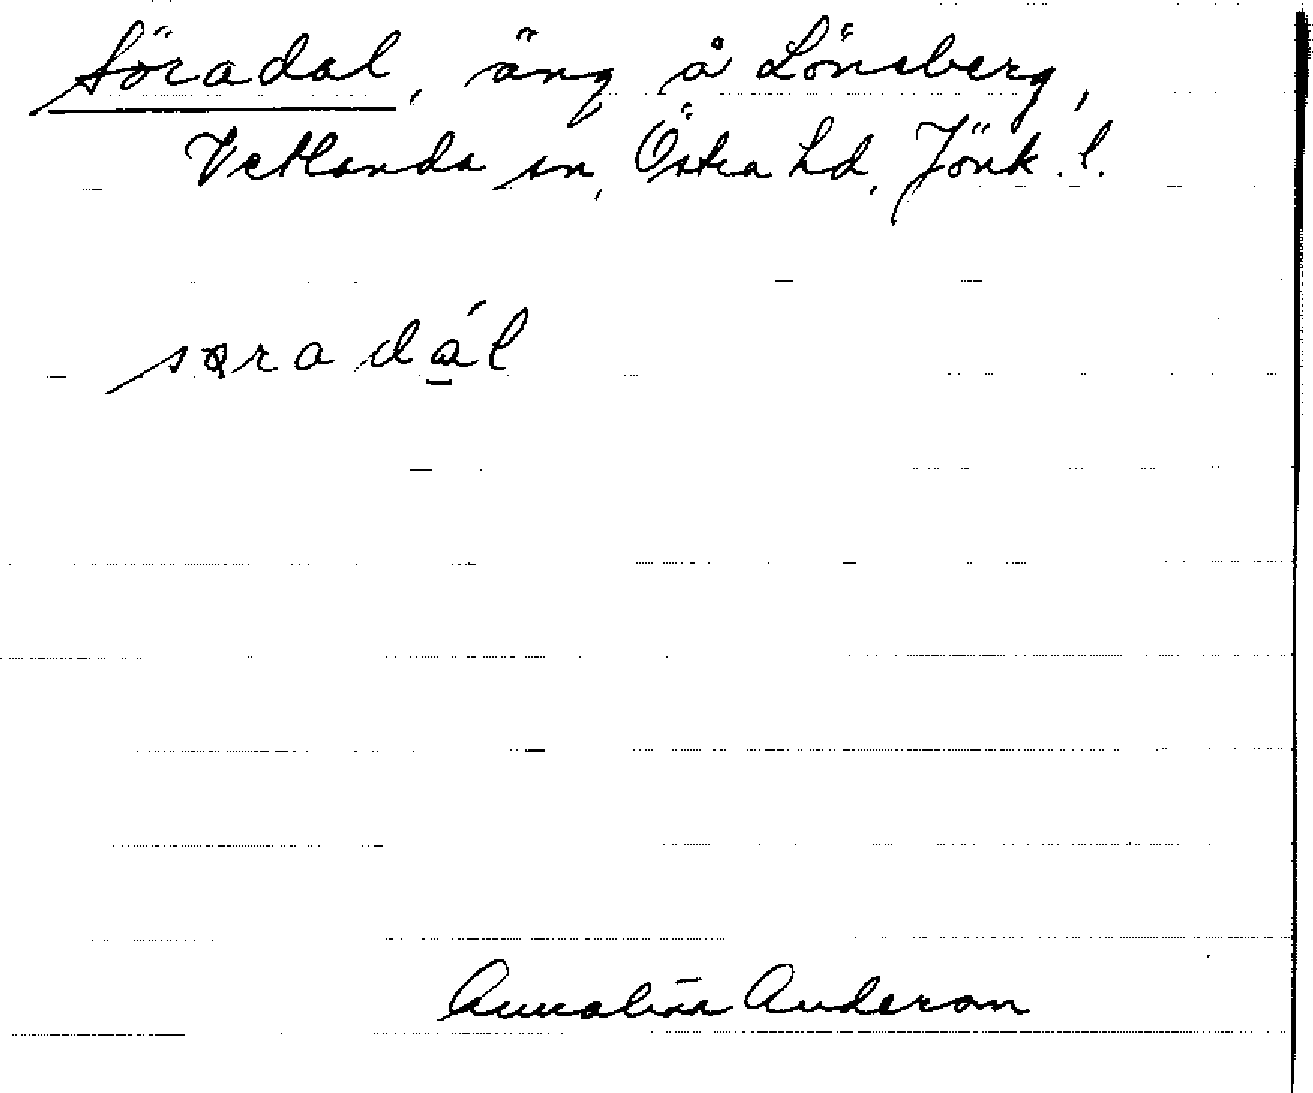 Söradal, äng å Lönsberg,
Vetlanda sn, Östra hd, Jönk. l.
søradál
Annalisa Anderson